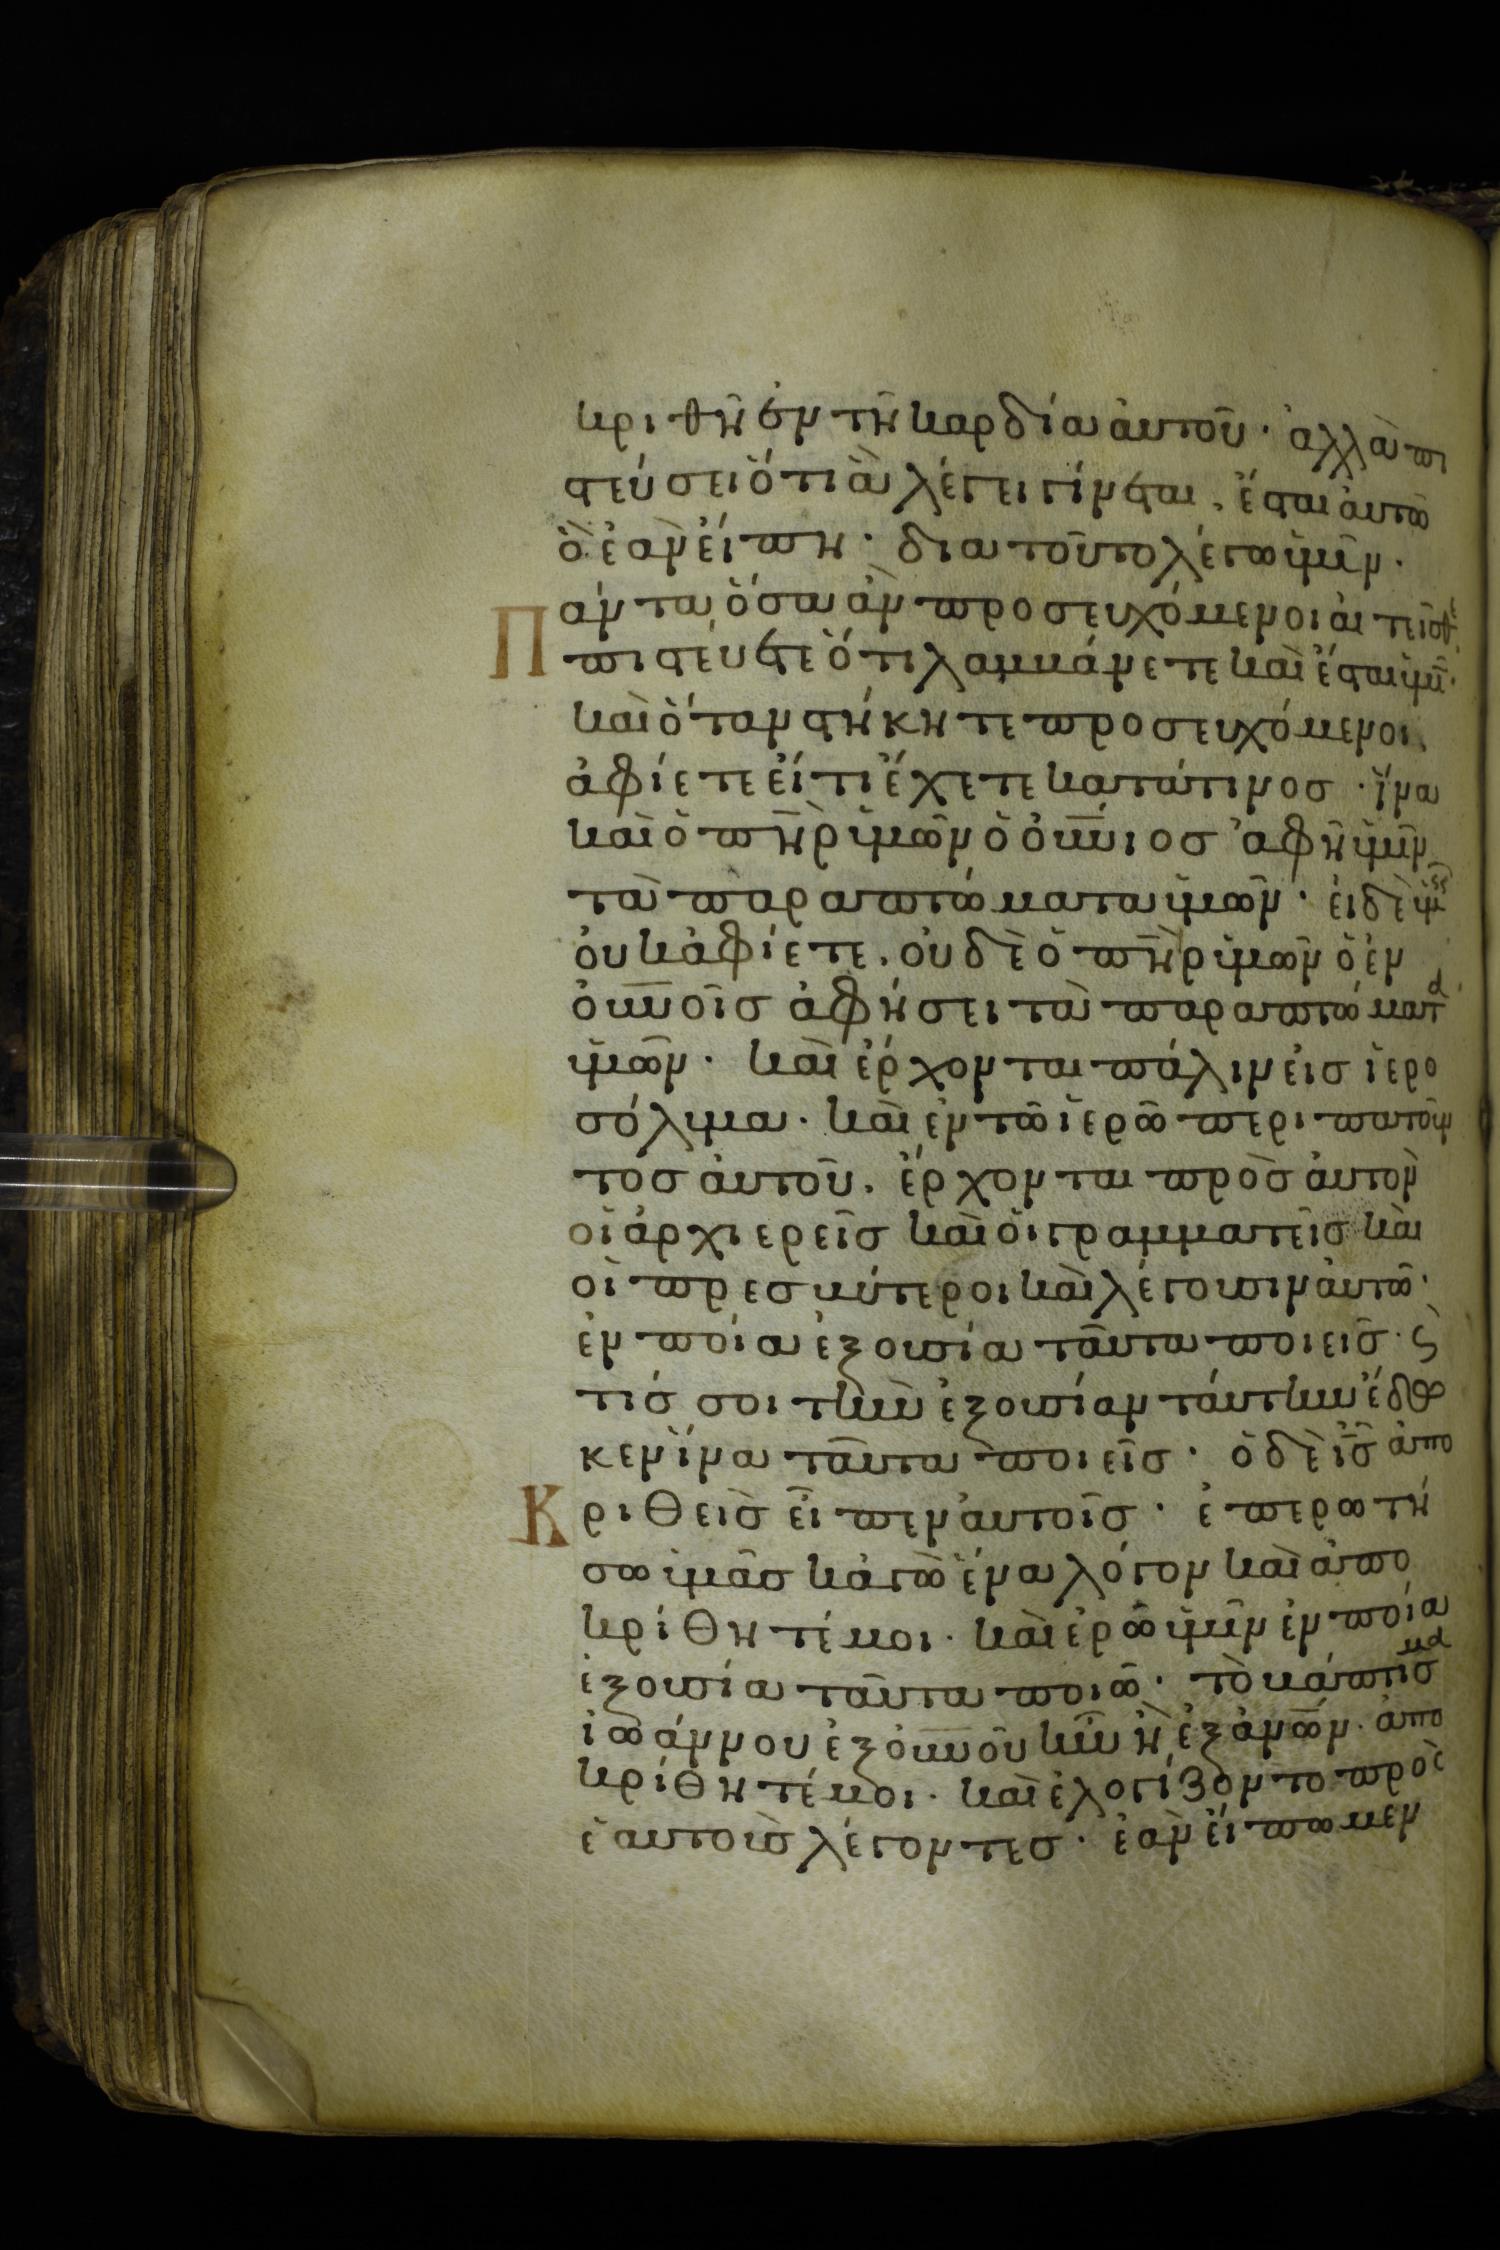 κριθῆ ἐν τῆ καρδία ἀυτοῦ · ἀλλὰ πι
στεύσει ὅτι ἃ λέγει γίνεται, ἔσται ἀυτῶ
ὃ ἐὰν ἐίπη · δια τοῦτο λέγω ὑμῖν ·
Πάντα ὅσα ἂν προσευχόμενοι ἀιτεῖσθε
πιστεύετε ὅτι λαμβάνετε καὶ ἔσται ὑμῖν ·
καὶ ὅταν στήκητε προσευχόμενοι,
ἀφίετε ἐί τι ἔχετε κατάτινοσ · ἵνα
καὶ ὁ π̅η̅ρ ὑμῶν ὁ ὀυ̅ν̅ιοσ ἀφῆ ὑμῖν
τὰ παραπτώματα ὑμῶν · ἐι δὲ ὑμεῖς
ὀυκ ἀφίετε, ὀυδὲ ὁ π̅η̅ρ ὑμῶν ὁ ἐν
ὀυ̅ν̅οῖσ ἀφήσει τὰ παραπτώματα
ὑμῶν · καὶ ἔρχονται πάλιν ἐισ ἱερο
σόλυμα · καὶ ἐν τῶ ἱερῶ περιπατοῦν
τοσ ἀυτοῦ, ἔρχονται πρὸσ ἀυτὸν
οἱ ἀρχιερεῖσ καὶ ὁι γραμματεῖσ καὶ
οἱ πρεσβύτεροι καὶ λέγουσιν ἀυτῶ ·
ἐν ποία ἐξουσία ταῦτα ποιεῖσ · ϛ̀
τίσ σοι τὴν ἐξουσίαν τάυτην ἔδω
κεν ἵνα ταῦτα ποιεῖσ · ὁ δὲ ι̅σ̅ ἀπο
Κριθεὶσ εἶπεν ἀυτοῖσ · ἐπερωτή
σω ὑμᾶσ κἀγὼ ἕνα λόγον καὶ ἀπο
κρίθητέ μοι · καὶ ἐρῶ ὑμῖν ἐν ποία
ἐξουσία ταῦτα ποιῶ · τὸ βάπτισμα
ἰωάννου ἐξ ὀυ̅ν̅οῦ ἦν ἢ ἐξ ἀν̅ω̅ν · ἀπο
κρίθητέ μοι · καὶ ἐλογίζοντο πρὸς
ἑαυτοὺσ λέγοντεσ · ἐὰν ἐίπωμεν